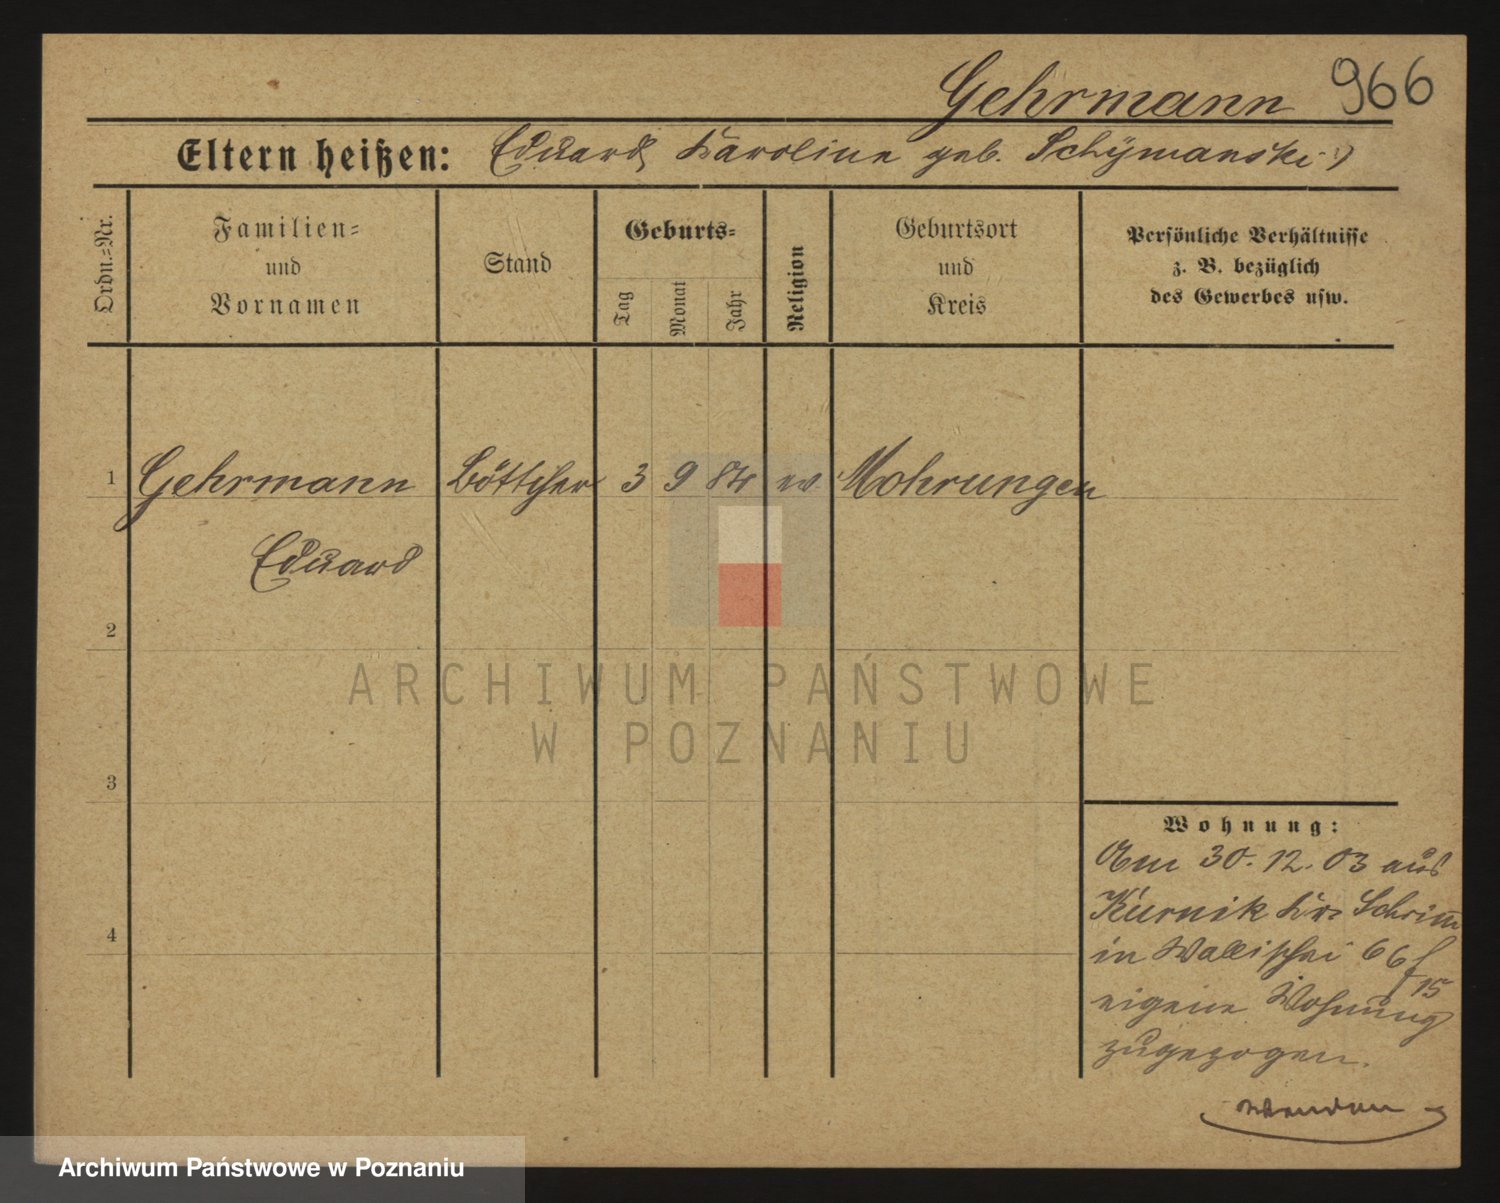 Gehrmann 966
Eltern heißen: Eduard Karoline geb. Schÿmanski
Ordn.=Nr.
Familien=
und
Vornamen
Stand
Geburts=
Tag
Monat
Jahr
Religion
Geburtsort
und
Kreis
Persönliche Verhältnisse
z. B. bezüglich
des Gewerbes usw.
1 Gehrmann Böttcher 3 9 84 ev Mohrungen
Eduard
2
ARCHIWUM PAŃSTWOWE
W POZNANIU
3
4
Wohnung:
Am 30.12.03 aus
Kurnik Krs Schrim
in Wallischei 66/15
eigene Wohnung
zugezogen.
Archiwum Państwowe w Poznaniu